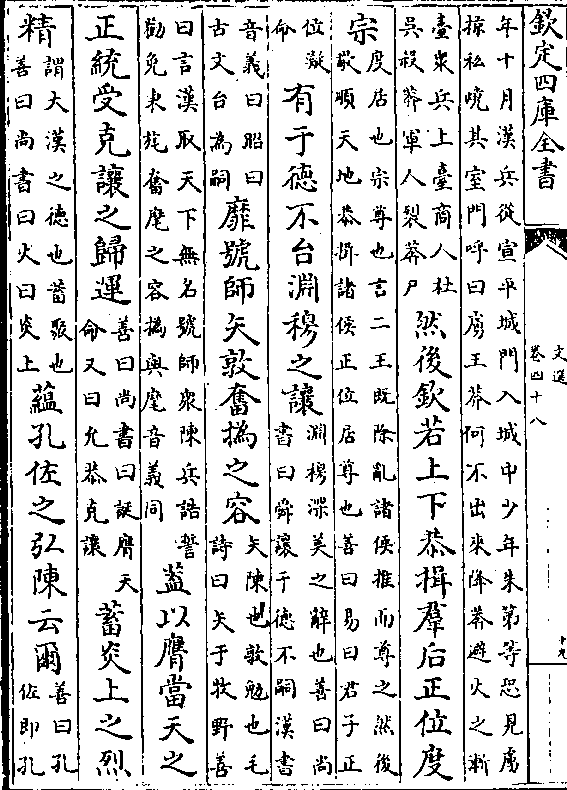 欽定四庫全書
文選
卷四十八
十九
年十月漢兵從宣平城門入城中少年朱第等恐見虜
掠私燒其室門呼曰虜王莽何不出來降莽避火之漸
臺衆兵上臺商人杜
吳殺莽軍人裂莽尸
然後欽若上下恭揖羣后正位度
宗
度居也宗尊也言二王既除亂諸侯推而尊之然後
敬順天地恭揖諸侯正位居尊也善曰易曰君子正
位凝
命
有于德不台淵穆之讓
淵穆深美之辭也善曰尚
書曰舜讓于德不嗣漢書
音義曰昭曰
古文台為嗣
靡號師矢敦奮撝之容
矢陳也敦勉也毛
詩曰矢于牧野善
曰言漢取天下無名號師衆陳兵誥誓
勸免秉旄奮麾之容撝與麾音義同
蓋以膺當天之
正統受克讓之歸運
善曰尚書曰誕膺天
命又曰允恭克讓
蓄炎上之烈
精
謂大漢之德也蓄聚也
善曰尚書曰火曰炎上
蘊孔佐之弘陳云爾
善曰孔
佐即孔